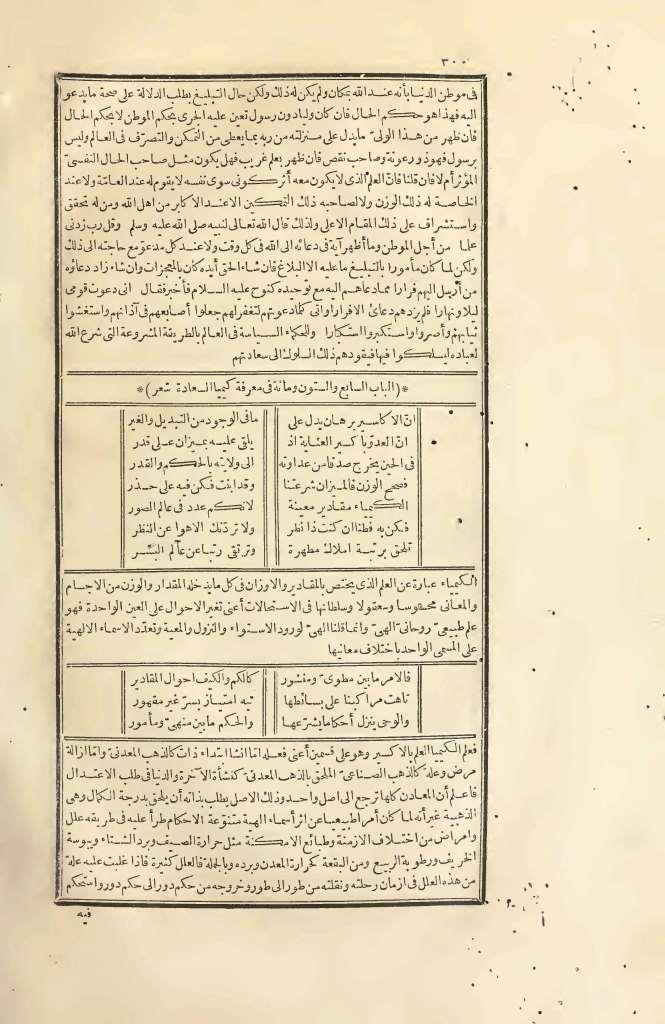 ٣٠٠
فى موطن الدنيا بأنه عند الله بمكان ولم يكن له ذلك ولكن حال التبليغ يطلب الدلالة على صحة ما يدعو
اليه فهذا هو حكم الحال فان كان وليا دون رسول تعين عليه الجرى بحكم الموطن لا بحكم الحال
فان ظهر من هذا الولىّ ما يدل على منزلته من ربه بما يعطى من التمكن والتصرّف فى العالم وليس
برسول فهو ذو رعونة وصاحب نقص فان ظهر بعلم غريب فهل يكون مثل صاحب الحال النفسىّ
المؤثر أم لا فان قلنا فانّ العلم الذى لا يكون معه أثر كونى سوى نفسه لا يقوم له عند العامّة ولا عند
الخاصة له ذلك الوزن ولا لصاحبه ذلك التمكين الا عند الاكابر من اهل الله ومن له تحقق
واستشراف على ذلك المقام الاعلى ولذلك قال الله تعالى لنبيه صلى الله عليه وسلم وقل رب زدنى
علما من أجل الموطن وما أظهر آية فى دعائه الى الله فى كل وقت ولا عند كل مدعوّ مع حاجته الى ذلك
ولكن لما كان مأمورا بالتبليغ ما عليه الا البلاغ فان شاء الحق أيده كان بالمعجزات وان شاء زاد دعاؤه
من أرسل اليهم فرارا مما دعاهم اليه مع توحيده كنوح عليه السلام فأخبر فقال انى دعوت قومى
ليلا ونهارا فلم يزدهم دعائى الا فرارا وانى كلما دعوتهم لتغفر لهم جعلوا أصابعهم فى آذانهم واستغشوا
ثيابهم وأصروا واستكبروا استكبارا والحكماء السياسة فى العالم بالطريقة المشروعة التى شرع الله
لعباده ليسلكوا فيها فيقودهم ذلك السلوك الى سعادتهم
*(الباب السابع والستون ومائة فى معرفة كيمياء السعادة شعر)*
انّ الاكاسير برهان يدل على ما فى الوجود من التبديل والغير
انّ العدوّ باكسير العناية اذ يلقى عليه بميزان على قدر
فى الحين يخرج صدقا من عداوته الى ولايته بالحكم والقدر
فصحح الوزن فالميزان شرعتنا وقد أبنت فكن فيه على حذر
الكيمياء مقادير معينة لانّ كم عدد فى عالم الصور
فكن به فطنا ان كنت ذا نظر ولا تردّنك الاهوا عن النظر
تلحق برتبة املاك مطهرة وترتقى رتبا عن عالم البشر
الكيمياء عبارة عن العلم الذى يختص بالمقادير والاوزان فى كل ما يدخله المقدار والوزن من الاجسام
والمعانى محسوسا ومعقولا وسلطانها فى الاستحالات أعنى تغير الاحوال على العين الواحدة فهو
علم طبيعىّ روحانىّ الهىّ وانما قلنا الهىّ لورود الاستواء والنزول والمعية وتعدّد الاسماء الالهية
على المسمى الواحد باختلاف معانيها
فالامر ما بين مطوىّ ومنشور كالكم والكيف احوال المقادير
تاهت مراكبنا على بسائطها تيه امتياز بسرّ غير مقهور
والوحى ينزل أحكاما يشرّعها والحكم ما بين منهىّ ومأمور
فعلم الكيمياء العلم بالاكسير وهو على قسمين أعنى فعله اما انشاء ابتداء ذات كالذهب المعدنىّ واما ازالة
مرض وعلة كالذهب الصناعىّ الملحق بالذهب المعدنىّ كنشأة الآخرة والدنيا فى طلب الاعتدال
فاعلم أن المعادن كلها ترجع الى اصل واحد وذلك الاصل يطلب بذاته أن يلحق بدرجة الكمال وهى
الذهبية غير أنه لما كان أمرا طبيعيا عن اثر أسماء الهية متنوّعة الاحكام طرأ عليه فى طريقه علل
وامراض من اختلاف الازمنة وطبائع الامكنة مثل حرارة الصيف وبرد الشتاء ويبوسة
الخريف ورطوبة الربيع ومن البقعة كحرارة المعدن وبرده وبالجملة فالعلل كثيرة فاذا غلبت عليه علة
من هذه العلل فى ازمان رحلته ونقلته من طور الى طور وخروجه من حكم دور الى حكم دور واستحكم
فيه